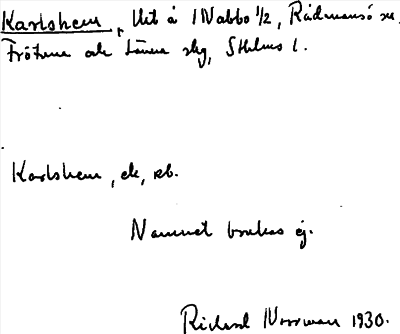 Karlshem, lht å 1 Nabbo 1/2, Rådmansö sn.
Frötuna och Länna skg, Sthlms l.
Karlshem, ek, rb.
Namnet brukas ej.
Richard Norrman 1930.